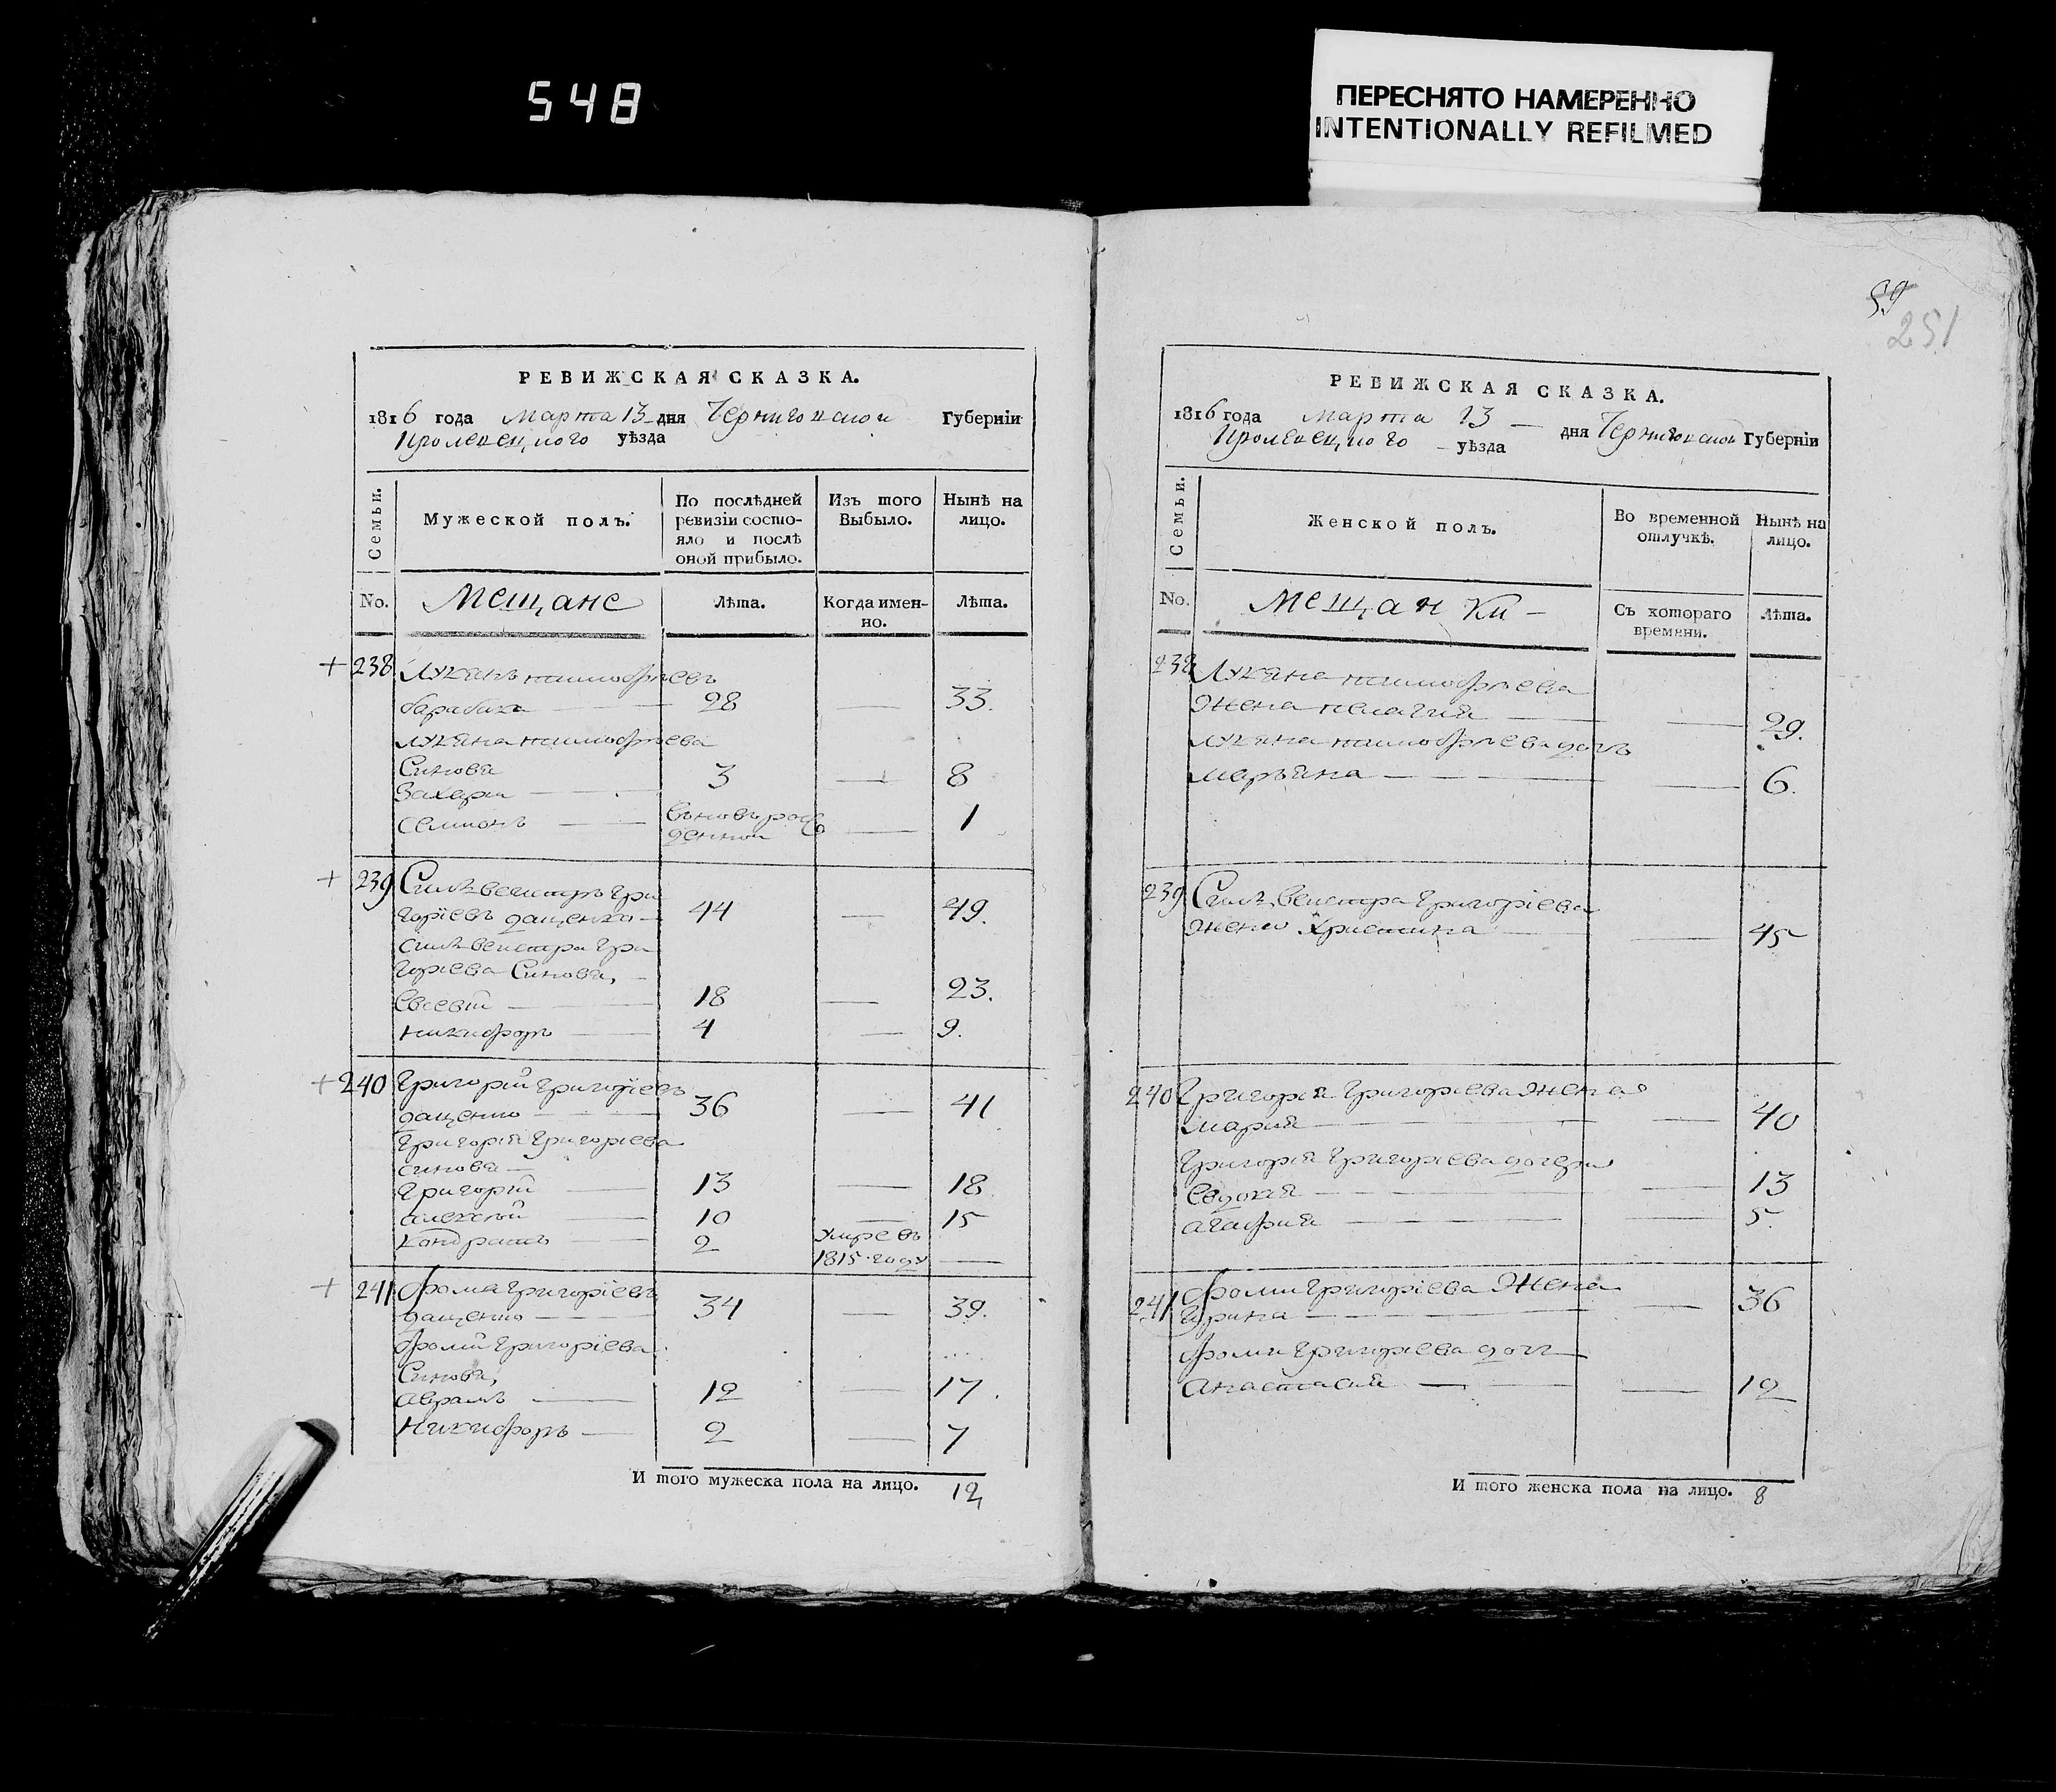 548
ПЕРЕСНЯТО НАМЕРЕННО
INTENTIONALLY REFILMED
59
251
РЕВИЖСКАЯ СКАЗКА.
1816 года Марта 13 дня Черниговской Губерніи
Кролевецкого уѣзда
Семьи.
Мужеской полъ.
По послѣдней ревизіи состо-
яло и послѣ
оной прибыло.
Изъ того
Выбыло.
Нынѣ на
лицо.
No.
Мещане
Лѣта.
Когда имен-
но.
Лѣта.
238 Лукянъ тимофѣевъ
барабаха — 28 — 33.
лукяна тимофѣева
Синовя
Захари — 3 — 8
семионъ — вновь рож
денной — 1
239 Силвестръ Гри
горіевъ дащенко — 44 — 49.
силвестра Гри
горіева Синовя,
Евсевій — 18 — 23.
никифоръ — 4 — 9.
240 Григорій Григоріевъ
дащенко — 36 — 41
Григорія Григоріева
синовя —
Григорій — 13 — 18
алексѣй — 10 — 15
кондратъ — 2 умре въ
1815 году —
241 Фома Григоріевъ
дащенко — 34 — 39.
Фоми Григоріева
Синовя,
аврамъ — 12 — 17.
Никифоръ — 2 — 7
И того мужеска пола на лицо. 12
РЕВИЖСКАЯ СКАЗКА.
1816 года Марта 13 — дня Черниговской Губерніи
Кролевецкого — уѣзда
Семьи.
Женской полъ.
Во временной
отлучкѣ.
Нынѣ на
лицо.
No.
Мещанки —
Съ котораго
времени.
Лѣта.
238 Лукяна тимофѣева
Жена пелагия — 29.
лукяна тимофѣева дочъ
маръяна — 6.
239 Силвестра Григоріева
жена Христина — 45
240 Григорія Григоріева жена
мария — 40
Григорія Григоріева дочери
Евдокия — 13
агафия — 5.
241 Фоми Григоріева Жена
Ирина — 36
Фоми Григоріева дочь
анастасия — 12
И того женска пола на лицо. 8